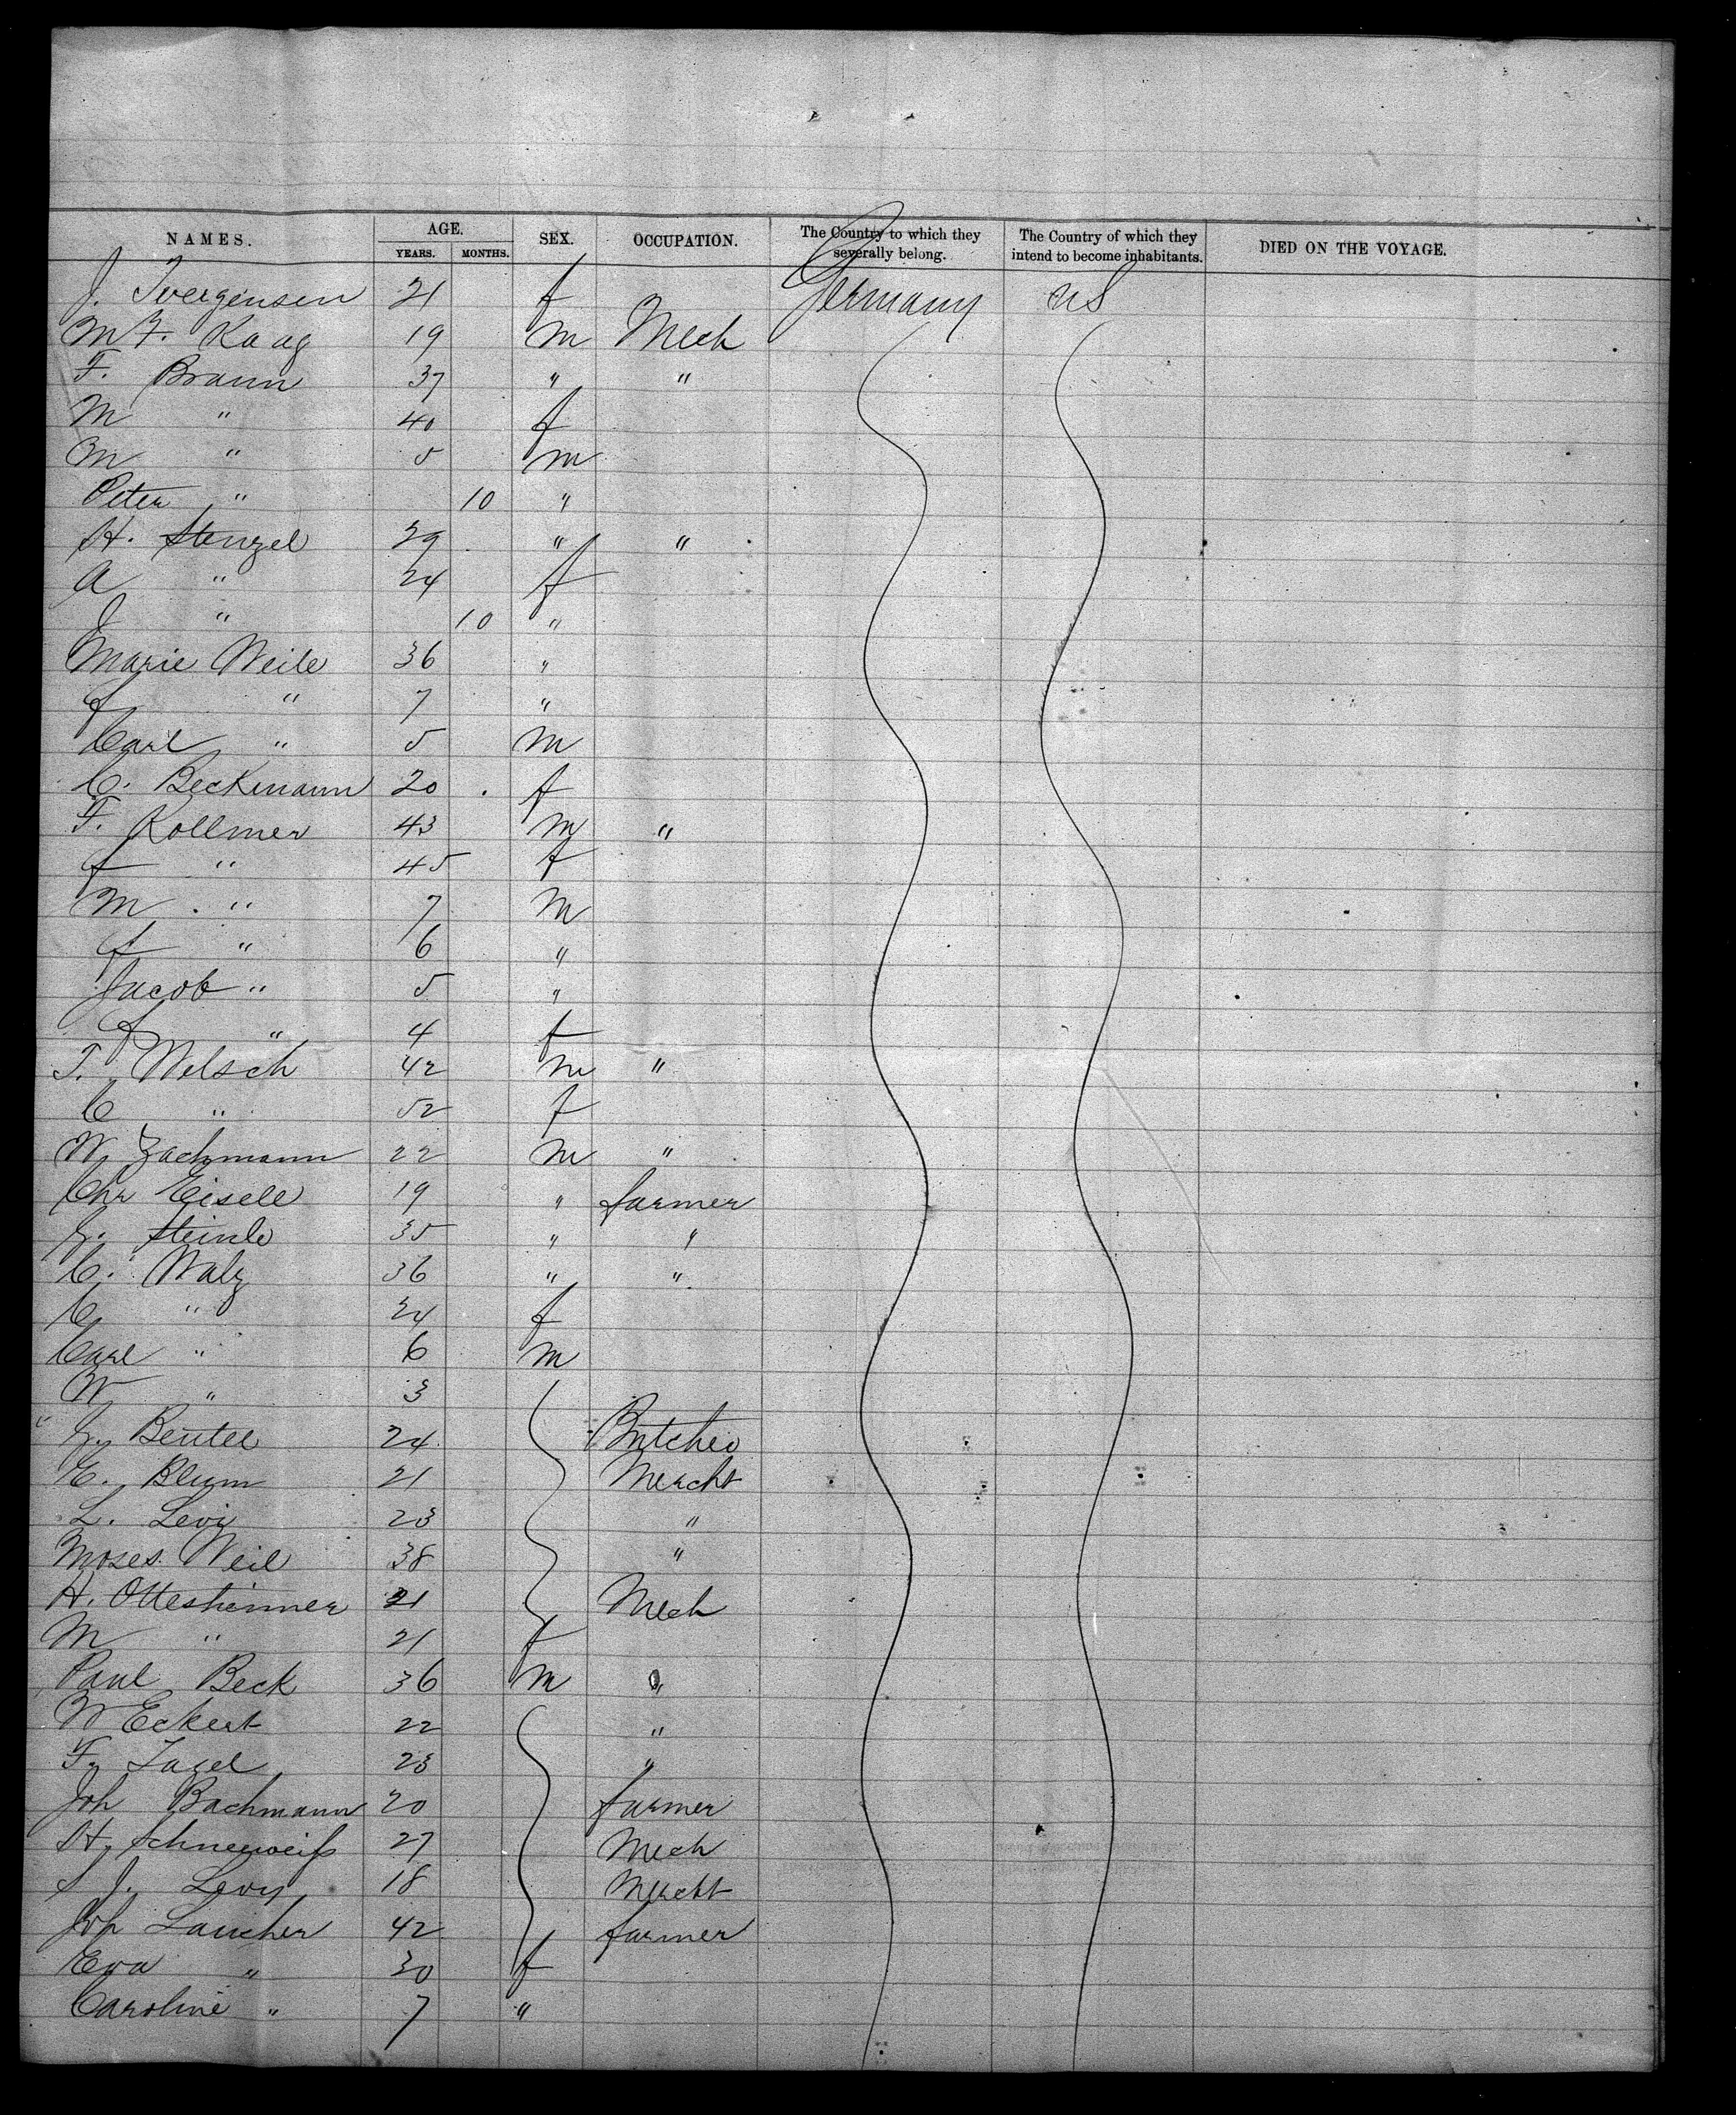 NAMES. AGE. SEX. OCCUPATION. The Country to which they severally belong. The Country of which they intend to become inhabitants. DIED ON THE VOYAGE.
YEARS. MONTHS.
J. Ivergensen 21 f Germany US
M F. Kaag 19 m Mech
F. Braun 37 " "
M " 40 f
M " 5 m
Peter " 10 "
H. Stenzel 29 " "
A " 24 f
J " 10 "
Marie Weile 36 "
f " 7 "
Carl " 5 m
C. Beckmann 20 f
F. Kollmer 43 m "
f " 45 f
M " 7 m
f " 6 "
Jacob " 5 "
f " 4 f
T. Welsch 42 m "
C " 52 f
W Zachmann 22 m "
Chr Eisele 19 " farmer
G. Steinle 35 " "
C. Walz 36 " "
C " 24 f
Carl " 6 m
W " 3
" G. Beutel 24 Butcher
E. Blum 21 Mercht
L. Levy 23 "
Moses Weil 38 "
H. Ottesheimer 21 Mech
M " 21 f
Paul Beck 36 m "
W Eckert 22 "
F. Zagel 23 "
Joh Bachmann 20 farmer
H. Schneeweiß 27 Mech
S J. Levy 18 Mercht
Joh Laucher 42 farmer
Eva " 30 f
Caroline " 7 "